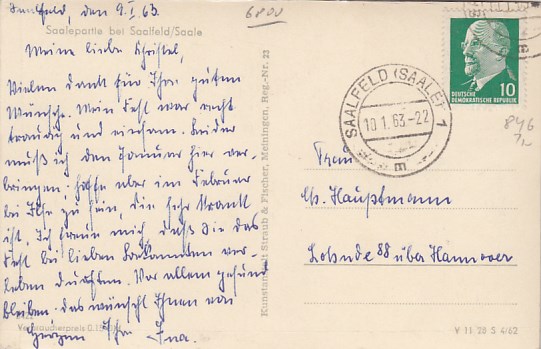 Saalfeld, den 9.I.63.
6800
Saalepartie bei Saalfeld/Saale
Meine liebe Christel,
Vielen Dank für Ihre guten
Wünsche. Mein Fest war recht
traurig und einsam. Leider
muß ich den Januar hier ver-
bringen, hoffe aber im Februar
bei Ilse zu sein, die sehr krank
ist. Ich freue mich, daß Sie das
Fest bei lieben Bekannten ver-
leben durften. Vor allem gesund
bleiben: das wünscht Ihnen von
Herzen Ihre Ina.
Verbraucherpreis 0.
Kunstanstalt Straub & Fischer, Meiningen, Reg.-Nr. 23
10
DEUTSCHE
DEMOKRATISCHE REPUBLIK
SAALFELD (SAALE) 1
10.1.63-22
m
846
Frau
Ch. Hauptmann
Lohnde 88 über Hannover
V 11 28 S 4/62